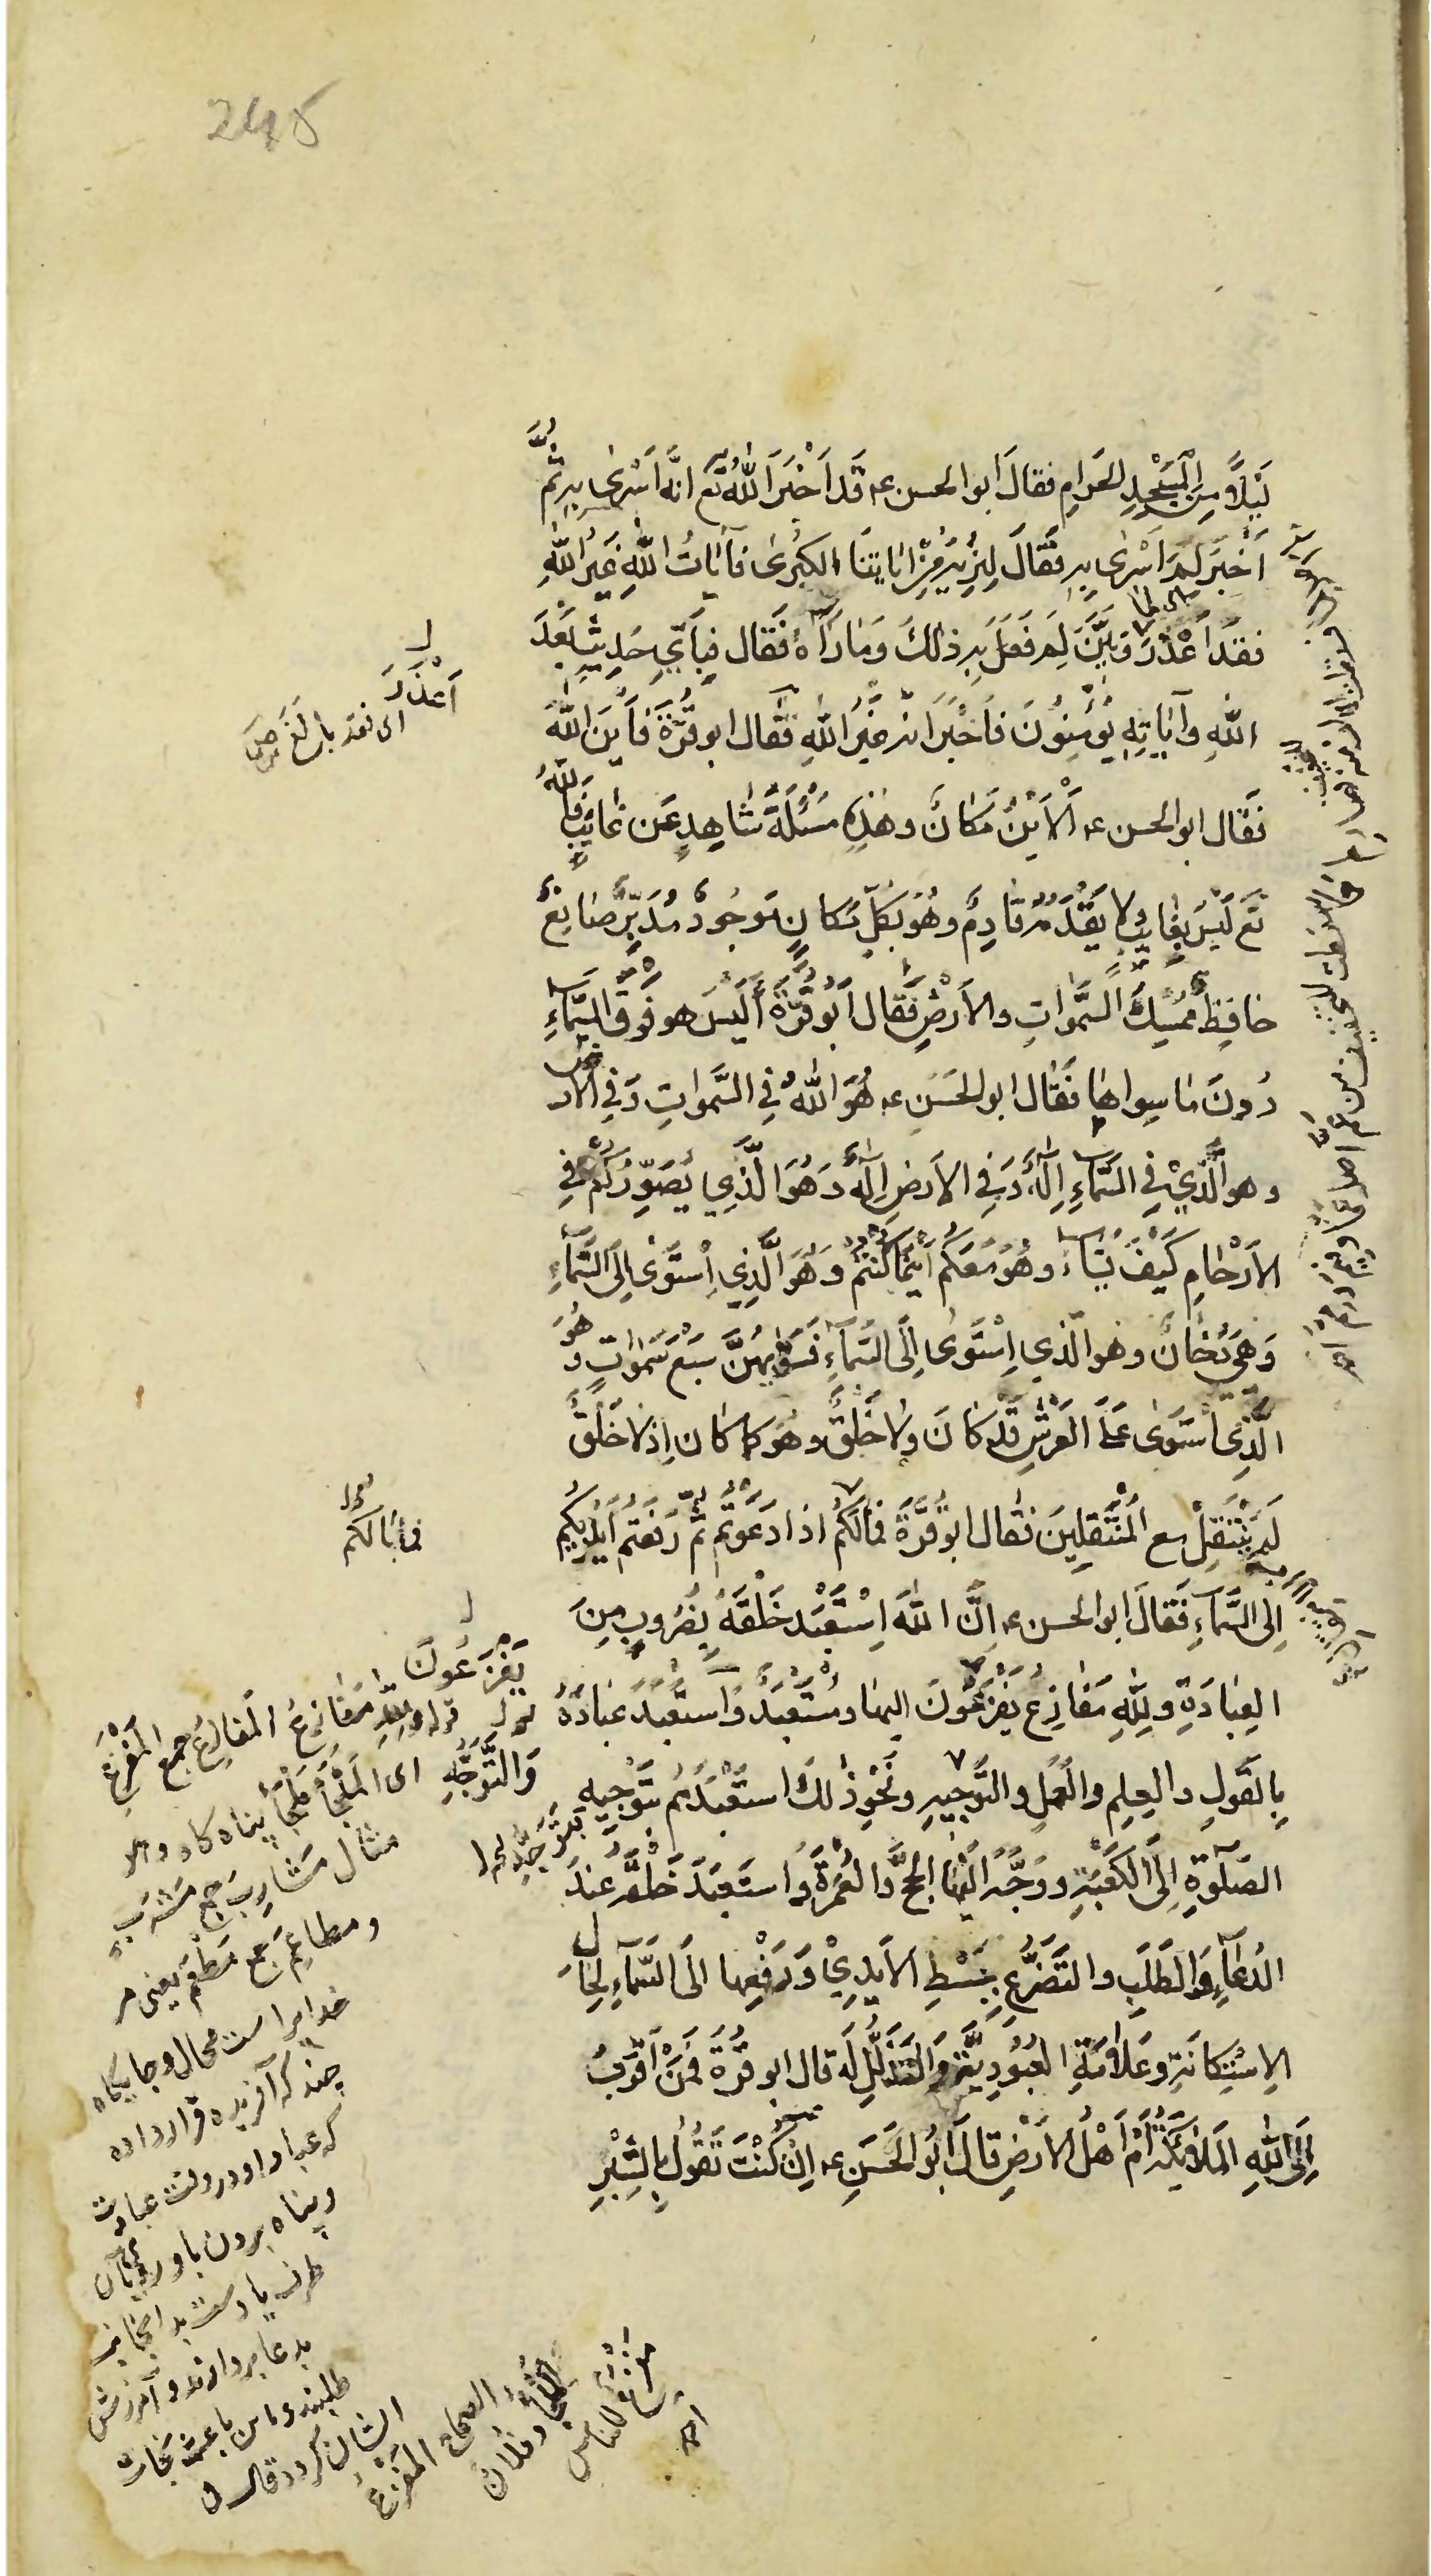 245
لَيْلاً مِنَ الْمَسْجِدِ الحَرامِ فقالَ ابو الحسن ع قَد اَخْبَرَ اللّٰهُ تَع انَّه اَسْرىٰ بِهِ ثُمَّ
اَخْبَرَ لِمَ اَسْرىٰ بِهِ فَقالَ لِنُرِيَهُ مِنْ اٰيٰاتِنَا الكُبْرىٰ فآيٰاتُ اللّٰهِ غَيْرُ اللّٰهِ
فَقَد اَعْذَرَ وَبَيَّنَ لِمَ فَعَلَ بِهِ ذٰلكَ وَمٰا رَآهُ فَقال فَبِاَيِّ حَدِيثٍ بَعْدَ
اَعْذَرَ
اللّٰهِ وآيٰاتِهِ يُؤْمِنُونَ فَاَخْبَرَ انّه غَيْرُ اللّٰهِ فَقال ابو قُرَّةَ فَاَيْنَ اللّٰهُ
فَقال ابو الحسن ع اَلْاَيْنُ مَكانٌ وهٰذِهِ مَسْئَلَةُ شٰاهِدٍ عَن غائِبٍ فَاللّٰهُ
تَع لَيْسَ بِغائِبٍ ولا يَقْدَمُهُ قٰادِمٌ وهُوَ بِكلِّ مَكانٍ مَوجُودٌ مُدَبِّرٌ صٰانِعٌ
حٰافِظٌ مُمْسِكُ السَّمٰواتِ والاَرْضِ فَقال اَبُو قُرَّةَ اَلَيْسَ هو فَوقَ السَّمٰاءِ
دُونَ مٰا سِواهٰا فَقال ابو الحَسَنِ ع هُوَ اللّٰهُ فِي السَّمٰواتِ وَفِي الاَرْضِ
وهو الَّذِيْ فِي السَّمٰاءِ اِلٰهٌ وَفِي الاَرضِ اِلٰهٌ وَهُوَ الَّذِي يُصَوِّرُكُم فِي
الاَرْحٰامِ كَيْفَ يَشٰاءُ وهُوَ مَعَكُم اَيْنَمٰا كُنتُم وَهُوَ الَّذِي اِسْتَوىٰ اِلَى السَّمٰاءِ
وَهِيَ دُخٰانٌ وهو الّذي اِسْتَوىٰ اِلَى السَّمٰاءِ فَسَوّٰيهُنَّ سَبْعَ سَمٰواتٍ وهُوَ
الَّذِي اسْتَوىٰ عَلَى العَرْشِ قَدْ كٰانَ ولا خَلْقَ وهُوَ كما كٰان اِذ لا خَلْقَ
لَم يَنْتَقِلْ مع الْمُنْتَقِلِينَ فَقال ابو قُرَّةَ فَمٰالَكُم اذا دَعَوتُم ثُمَّ رَفَعتُم اَيْدِيَكُم
فما بٰالكُم
اِلى السَّمٰاءِ فَقالَ ابو الحسن ع اِنَّ اللّٰهَ اِسْتَعْبَدَ خَلْقَهُ بِضُرُوبٍ مِنَ
العِبٰادَةِ ولِلّٰهِ مَفٰازِعُ يَفْزَعُونَ اليها ومُسْتَعْبَدٌ وَاسْتَعْبَدَ عِبٰادَهُ
يَفْزَعُونَ
بِالقَولِ والعِلمِ والعَمَلِ والتَّوجِيهِ ونَحْوِ ذٰلكَ استَعْبَدَهُم بِتَوْجِيهِ
وَالتَّوَجُّهِ
بِتَوَجُّهِ
الصَّلٰوةِ اِلَى الكَعْبَةِ ووَجَّهَ اليها الحَجَّ وَالعُمْرَةَ وَاستَعبَدَ خَلْقَه عِندَ
الدُعٰاءِ وَالطَّلَبِ والتَضَرُّعِ بِبَسْطِ الاَيْدِيْ وَرَفْعِها الَى السَّمٰاءِ لِحٰالِ
الاِسْتِكانَةِ وعَلٰامَةِ العُبُودِيَّةِ وَالتَذَلُّلِ لَه قال ابو قُرَّةَ فَمَنْ اَقرَبُ
اِلَى اللّٰهِ المَلٰائِكَةُ اَمْ اَهْلُ الاَرْضِ قالَ اَبُو الحَسَنِ ع اِنْ كُنْتَ تَقُولُ بِالشِّبْرِ
قوله وللّٰه مَفازِعُ المَفازِعُ جمع المَفْزَعِ
اى المَلْجَأُ
مثال مَشٰارِبَ جمع مَشْرَبٍ
ومطاعِمَ جمع مَطْعَمٍ يعنى مر
خدايراست محال وجايگاه
چند كه آفريده قرار داده
كه عباد او در وقت عبادت
وپناه بردن باو
بدعا بردارند وآمرزش
طلبند واين باعث نجات
ايشان گردد قال فى
الصحاح المَفْزَعُ
المَلْجَأُ وفلانٌ
مَفْزَعٌ للناسِ